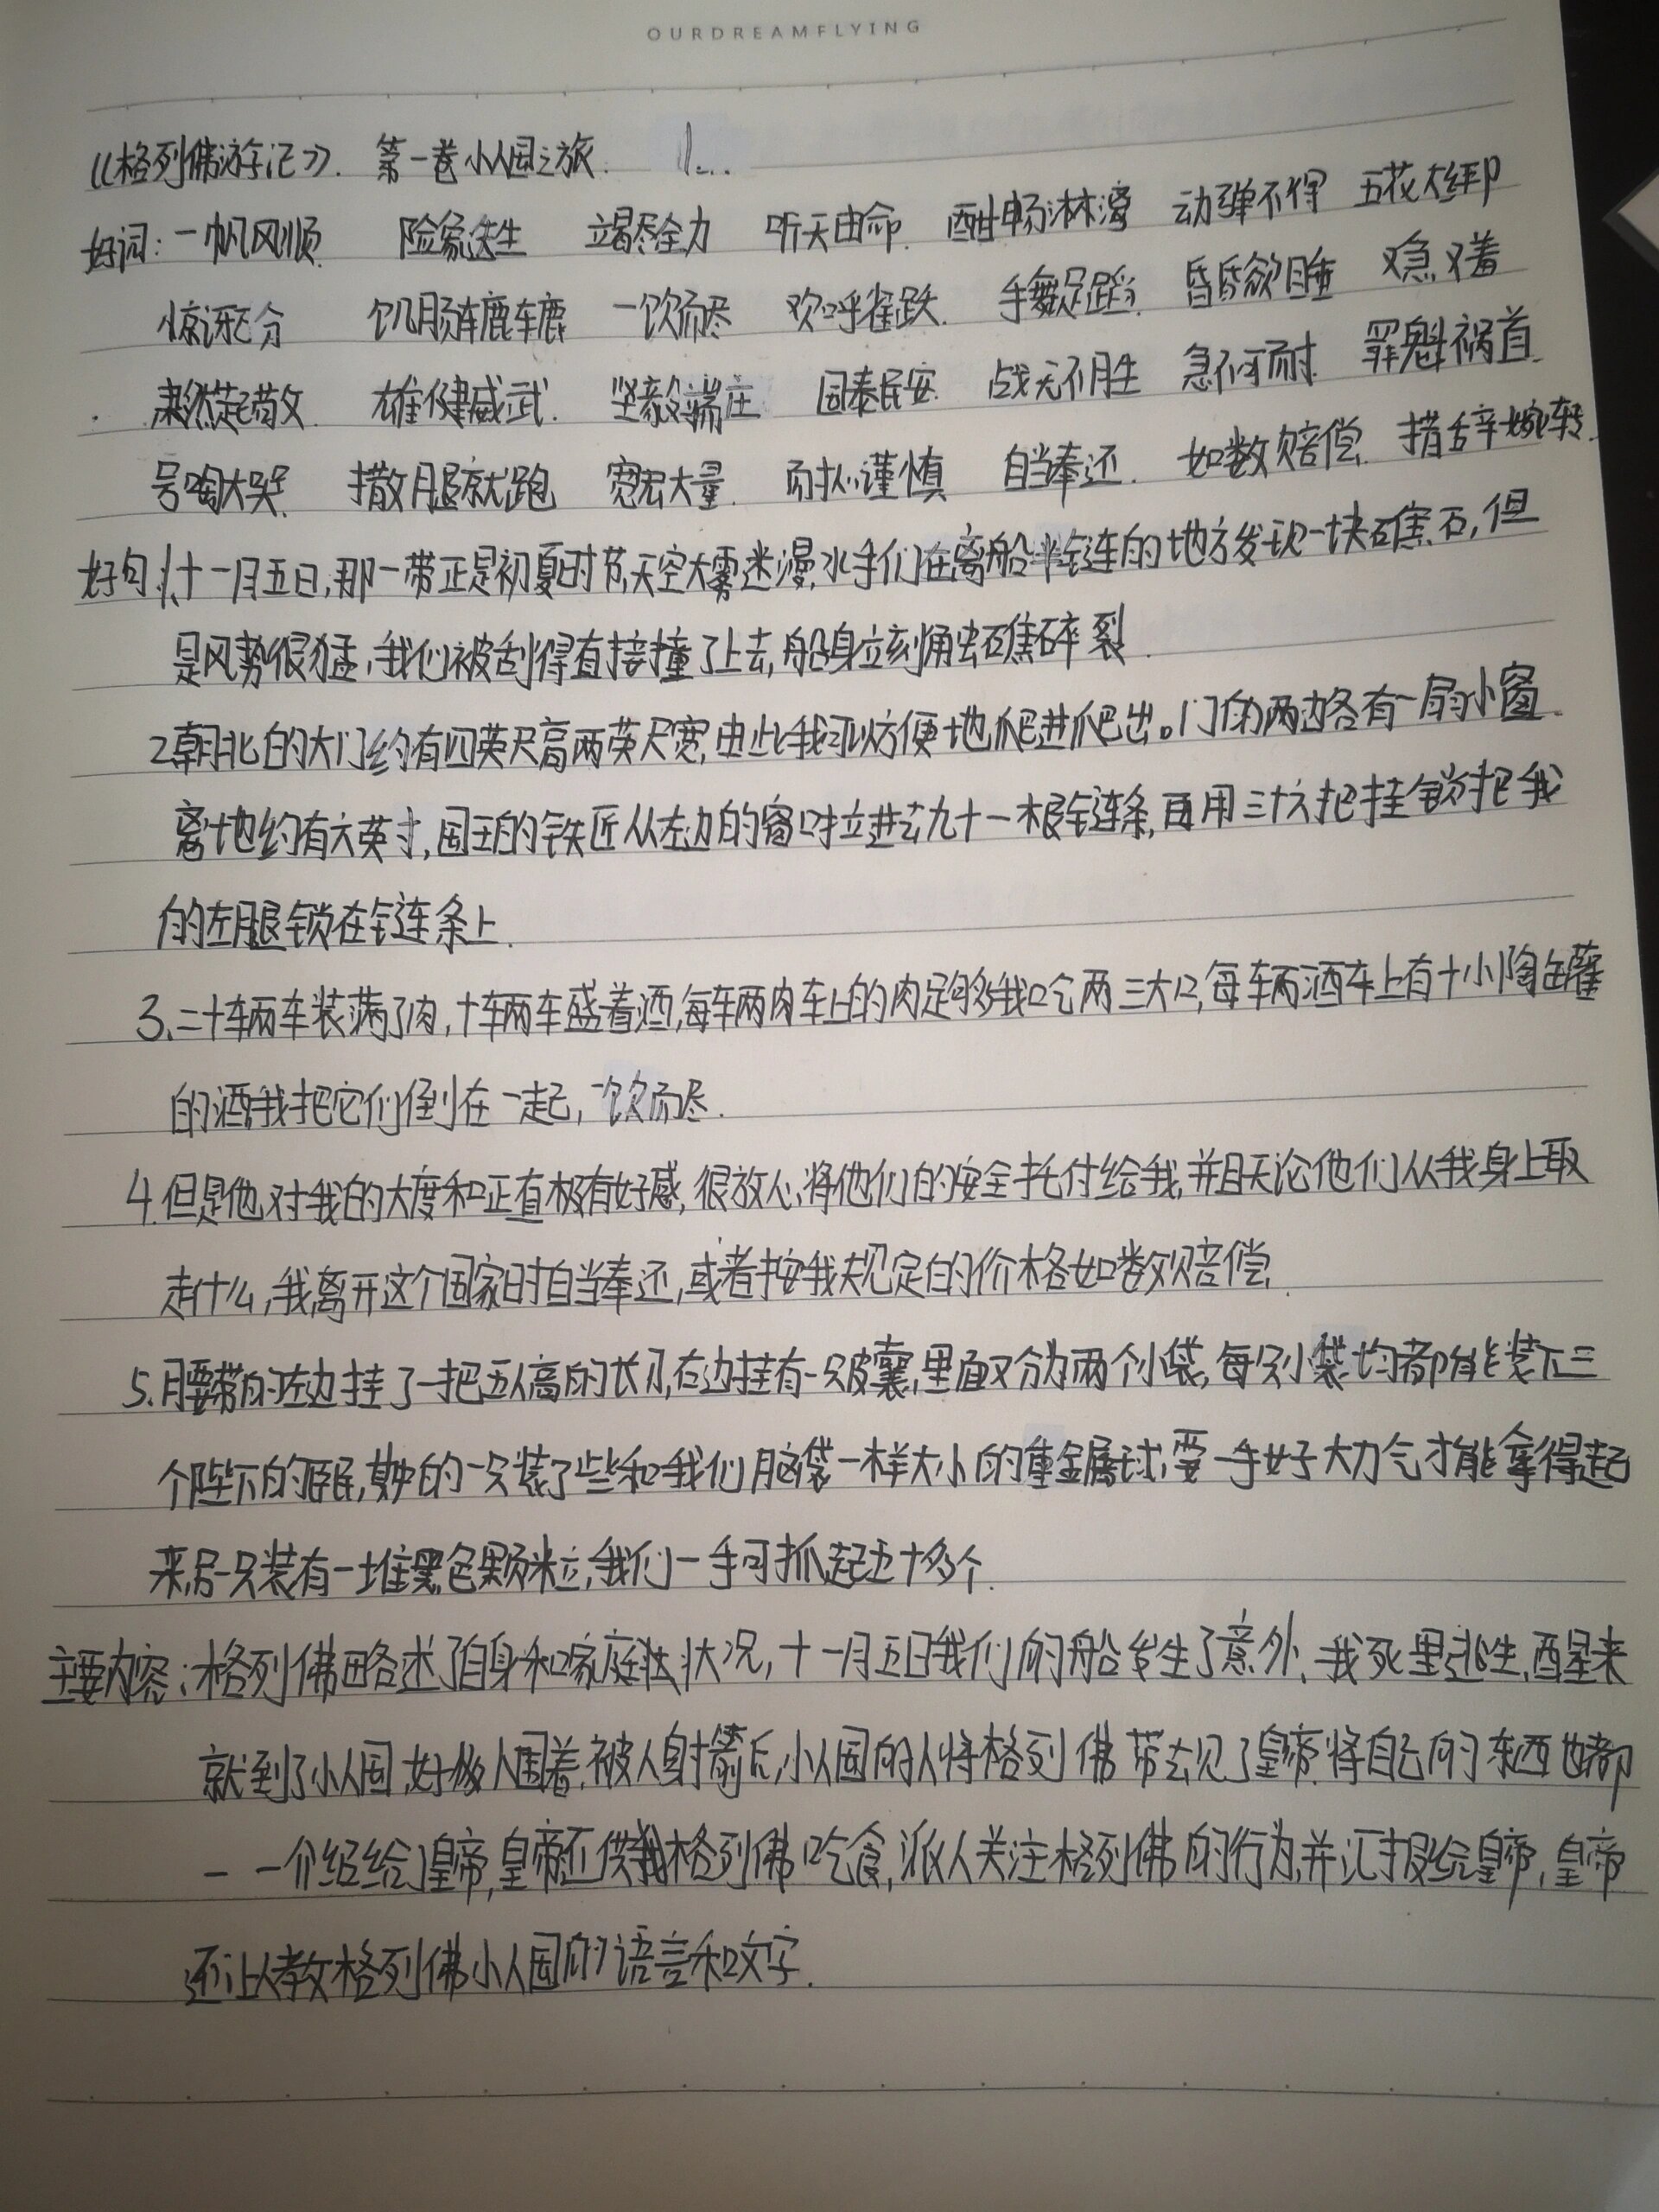 OURDREAMFLYING
《格列佛游记》. 第一卷小人国之旅. 1...
好词:一帆风顺 险象迭生 竭尽全力 听天由命 酣畅淋漓 动弹不得 五花大绑
惊讶万分 饥肠辘辘 一饮而尽 欢呼雀跃 手舞足蹈 昏昏欲睡 又急又羞
肃然起敬 雄健威武 坚毅端庄 国泰民安 战无不胜 急不可耐 罪魁祸首
号啕大哭 撒腿就跑 宽宏大量 审慎 自当奉还 如数赔偿 措辞婉转
好句:1.十一月五日,那一带正是初夏时节,天空大雾迷漫,水手们在离船半链的地方发现一块礁石,但
是风势很猛,我们被刮得直接撞了上去,船身立刻触礁碎裂.
2.朝北的大门约有四英尺高两英尺宽,由此我可以方便地爬进爬出。门的两边各有一扇小窗
离地约有六英寸,国王的铁匠从左边的窗口拉进去九十一根链条,再用三十六把挂锁把我
的左腿锁在链条上.
3.二十辆车装满了肉,十辆车盛着酒,每辆肉车上的肉足够我吃两三大口,每辆酒车上有十小陶罐
的酒,我把它们倒在一起,一饮而尽.
4.但是他对我的大度和正直极有好感,很放心将他们的安全托付给我,并且无论他们从我身上取
走什么,我离开这个国家时自当奉还,或者按我规定的价格如数赔偿.
5.腰带的左边挂了一把五人高的长刀,右边挂有一只皮囊,里面又分为两个小袋,每只小袋均都能装下三
个陛下的臣民,其中的一只装了些和我们脑袋一样大小的重金属球,要一手好大力气才能拿得起
来,另一只装有一堆黑色颗粒,我们一手可抓起五十多个.
主要内容:格列佛略述了自身和家庭状况,十一月五日我们的船发生了意外,我死里逃生,醒来
就到了小人国,好像人围着,被人射箭后,小人国的人将格列佛带去见了皇帝,将自己的东西也都
一一介绍给皇帝,皇帝还供格列佛吃食,派人关注格列佛的行为,并汇报给皇帝,皇帝
还让人教格列佛小人国的语言和文字.